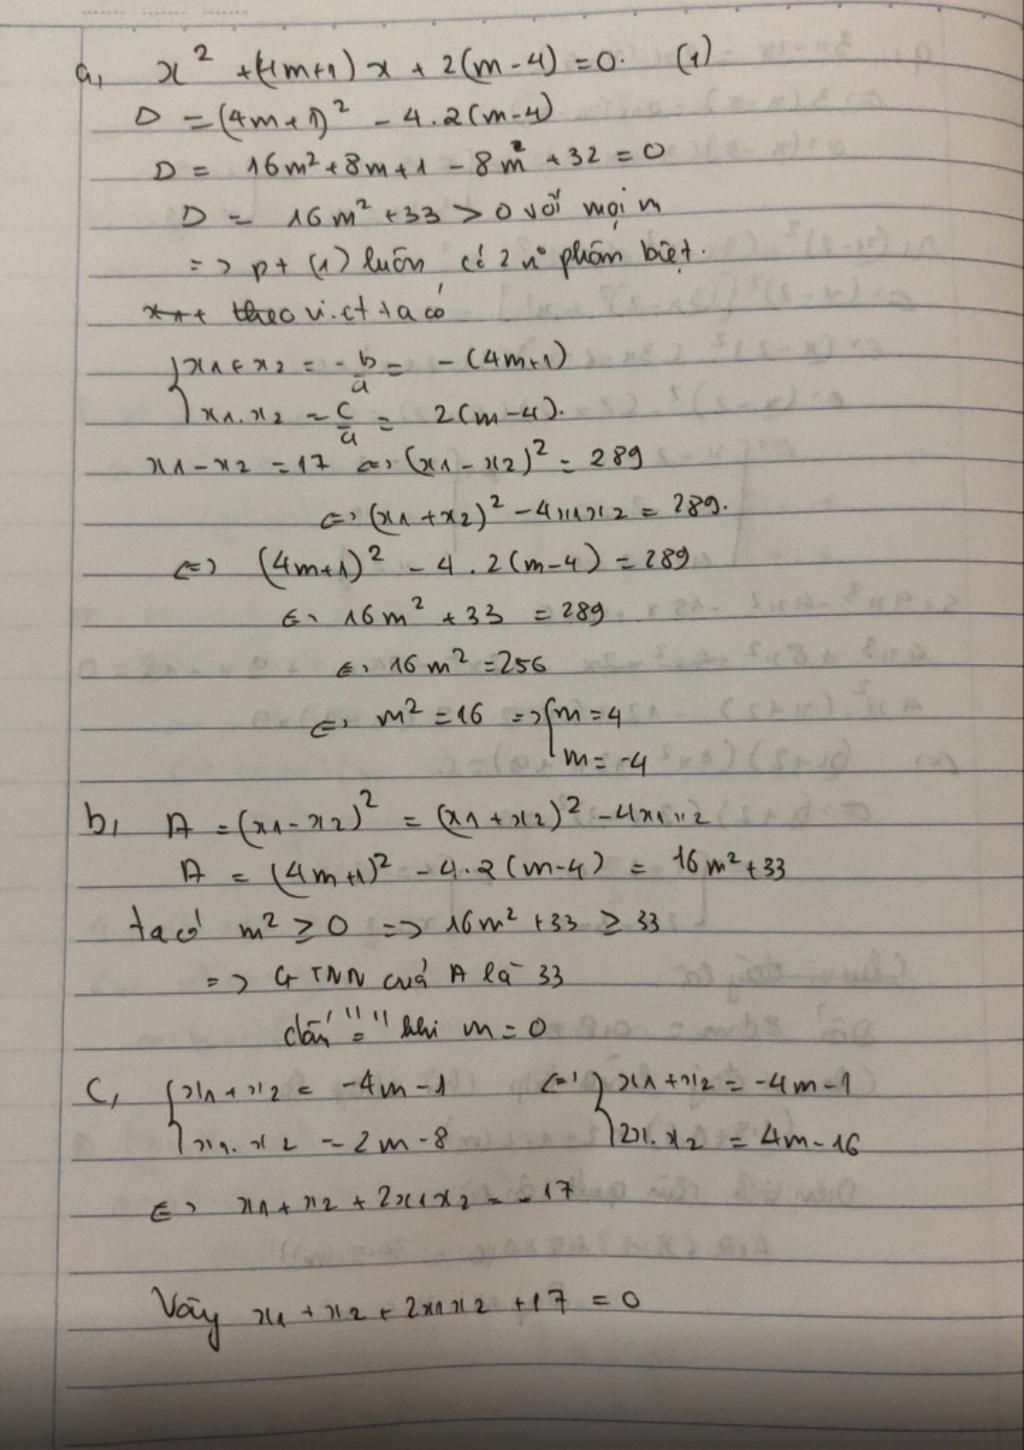 a, x² + (4m+1) x + 2(m-4) = 0. (1)
Δ = (4m+1)² - 4.2(m-4)
Δ = 16m² + 8m + 1 - 8m² + 32 = 0
Δ = 16m² + 33 > 0 với mọi m
=> pt (1) luôn có 2 n° phân biệt.
theo vi.et ta có
{ x1 + x2 = -b/a = -(4m+1)
x1.x2 = c/a = 2(m-4).
x1 - x2 = 17 <=> (x1 - x2)² = 289
<=> (x1 + x2)² - 4x1x2 = 289.
<=> (4m+1)² - 4.2(m-4) = 289
<=> 16m² + 33 = 289
<=> 16m² = 256
<=> m² = 16 => [ m = 4
m = -4
b, A = (x1 - x2)² = (x1 + x2)² - 4x1x2
A = (4m+1)² - 4.2(m-4) = 16m² + 33
ta có m² ≥ 0 => 16m² + 33 ≥ 33
=> GTNN cuả A là 33
dấu "=" khi m = 0
c, { x1 + x2 = -4m - 1 <=> { x1 + x2 = -4m - 1
x1.x2 = 2m - 8 2x1.x2 = 4m - 16
<=> x1 + x2 + 2x1x2 = -17
Vậy x1 + x2 + 2x1x2 + 17 = 0